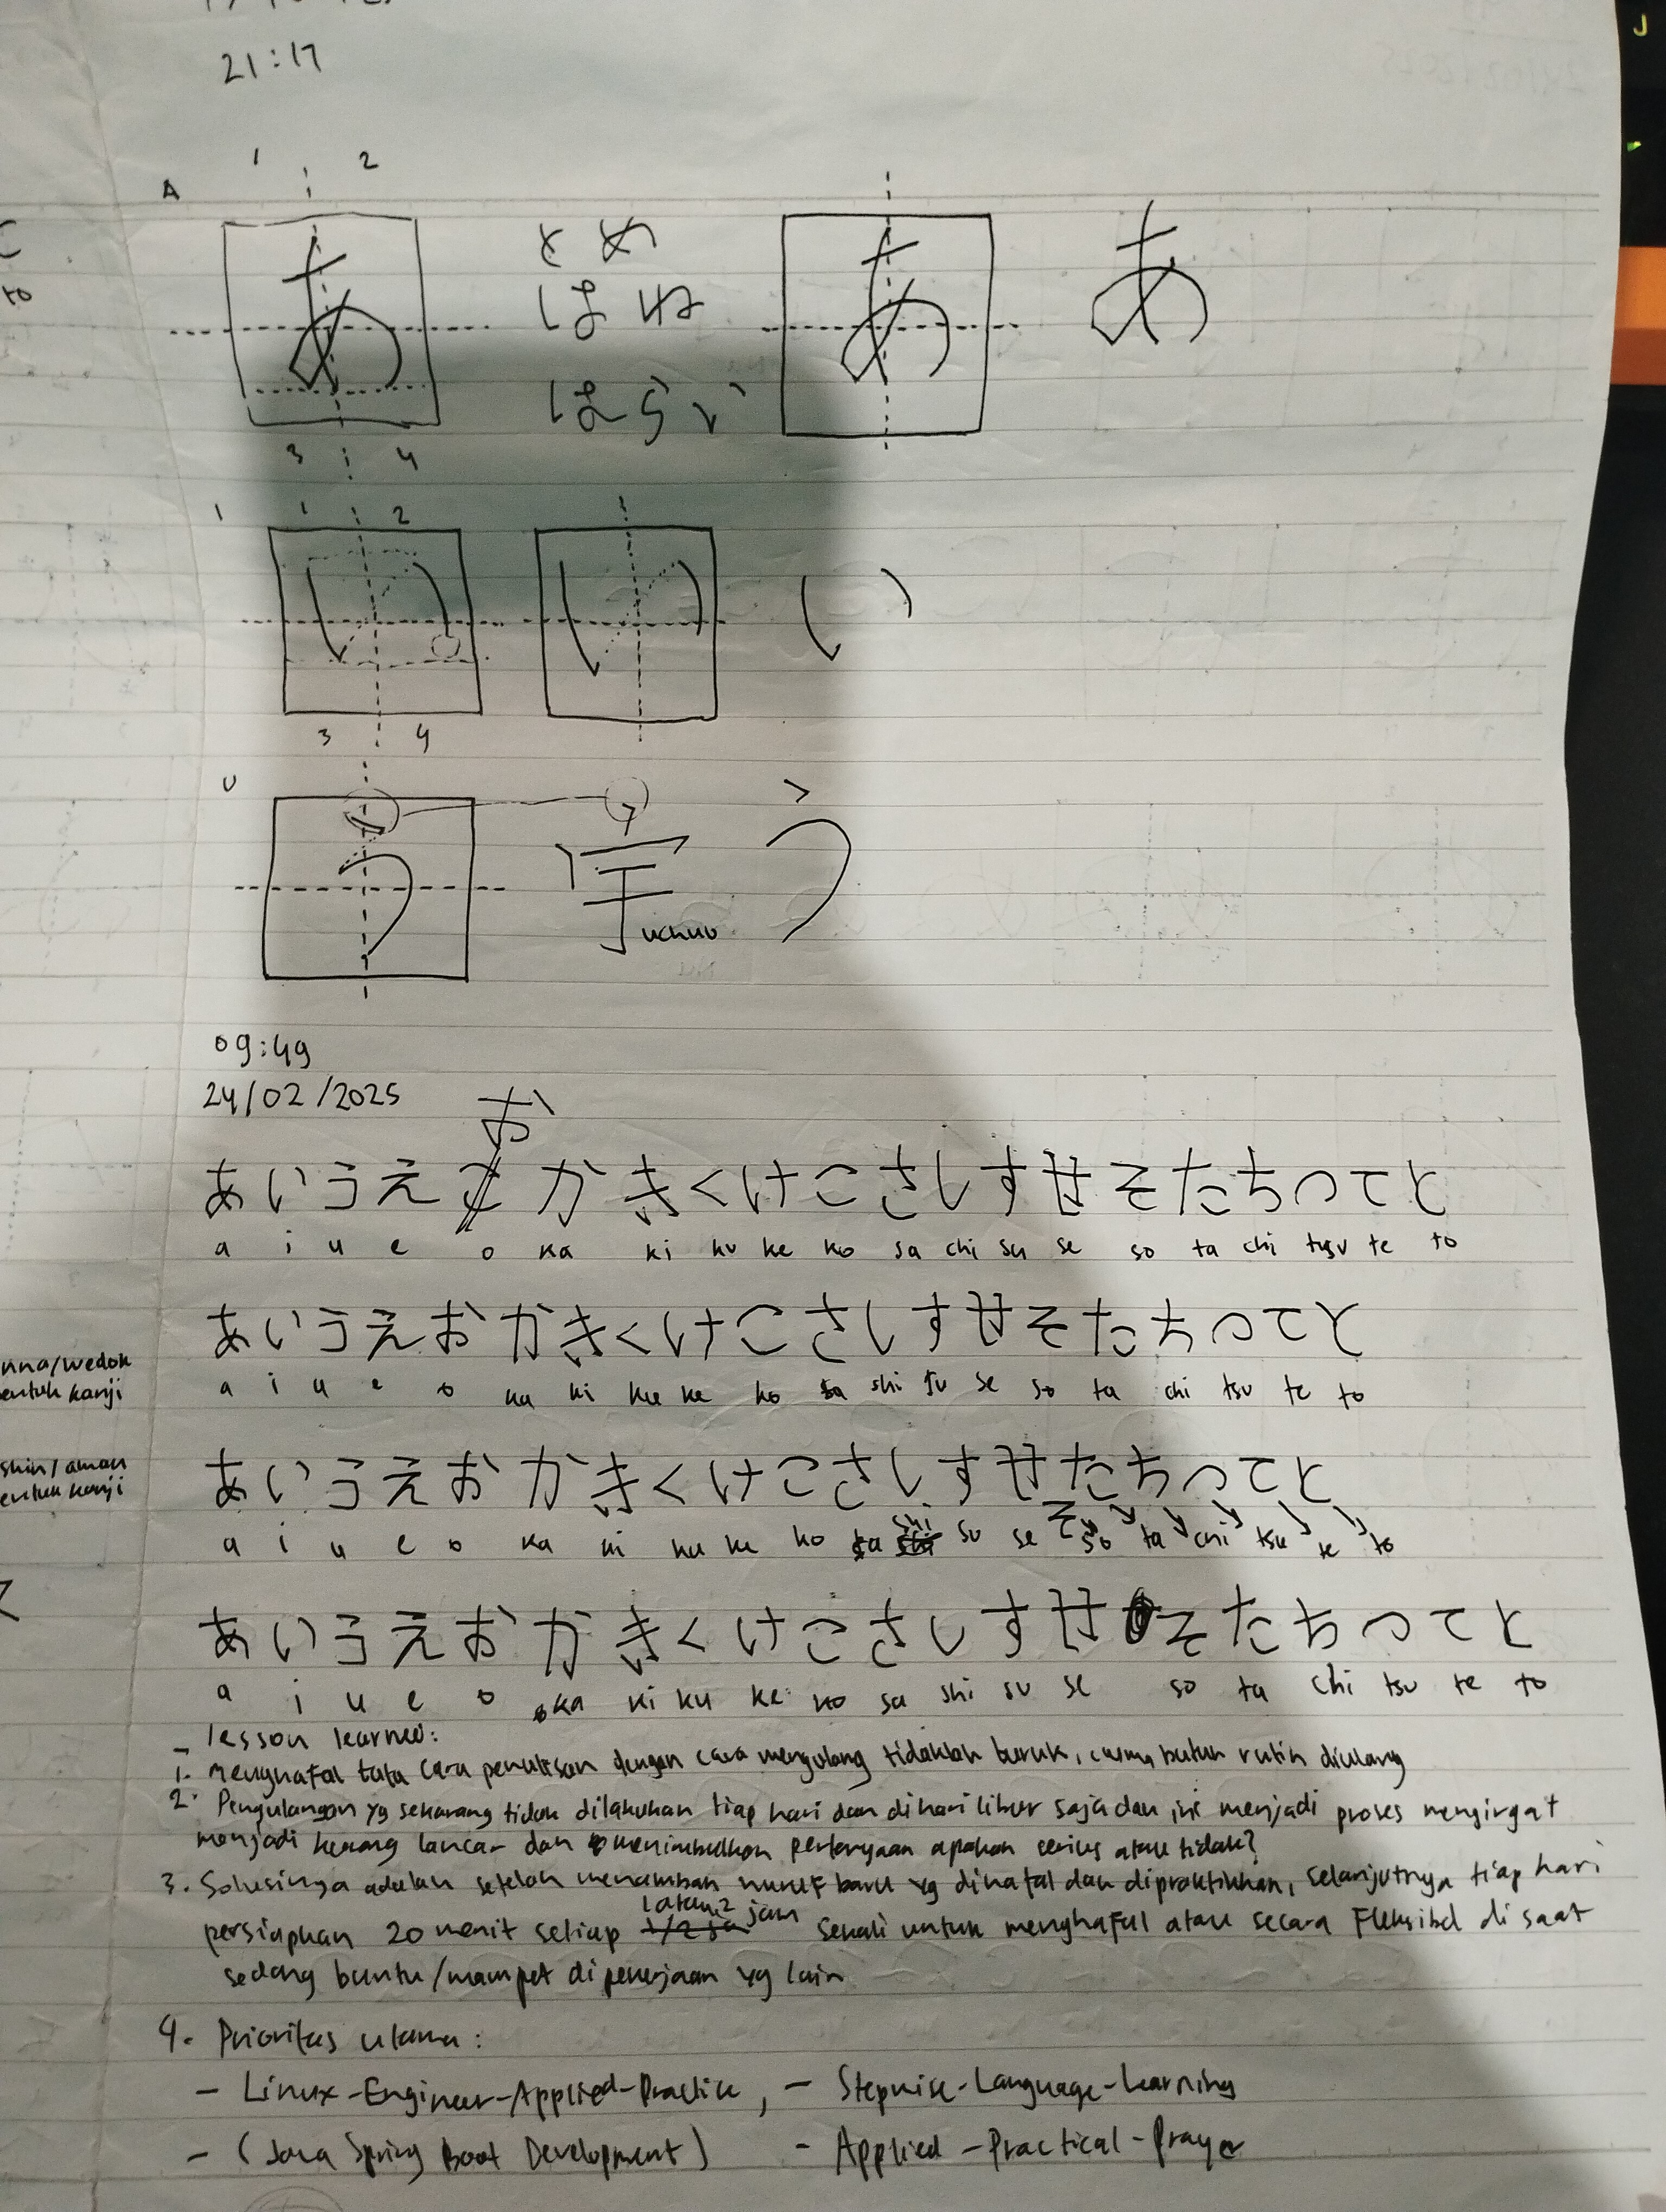 21:17
A
1 2
あ とめ あ あ
はね
はらい
3 4
1
1 2
い い い
3 4
U
う 宇 う
uchuu
09:49
24/02/2025
お
あいうえ かきくけこさしすせそたちつてと
a i u e o ka ki ku ke ko sa chi su se so ta chi tsu te to
あいうえおかきくけこさしすせそたちつてと
a i u e o ka ki ku ke ko sa shi su se so ta chi tsu te to
あいうえおかきくけこさしすせたちつてと
そ
shi
a i u e o ka ki ku ke ko sa su se so ta chi tsu te to
あいうえおかきくけこさしすせそたちつてと
a i u e o ka ki ku ke ko sa shi su se so ta chi tsu te to
lesson learned:
1. Menghafal tata cara penulisan dengan cara mengulang tidaklah buruk, cuma butuh rutin diulang
2. Pengulangan yg sekarang tidak dilakukan tiap hari dan dihari libur saja dan ini menjadi proses mengingat
menjadi kurang lancar dan menimbulkan pertanyaan apakah serius atau tidak?
3. Solusinya adalah setelah menambah huruf baru yg dihafal dan dipraktikkan, selanjutnya tiap hari
persiapkan 20 menit setiap jam sekali untuk menghafal atau secara Fleksibel di saat
sedang buntu/mampet di pekerjaan yg lain
4. Prioritas utama:
- Linux-Engineer-Applied-Practice, - Stepwise-Language-Learning
- (Java Spring Boot Development) - Applied-Practical-Prayer
nna/wedok
entuk kanji
shin/aman
entuk kanji
to